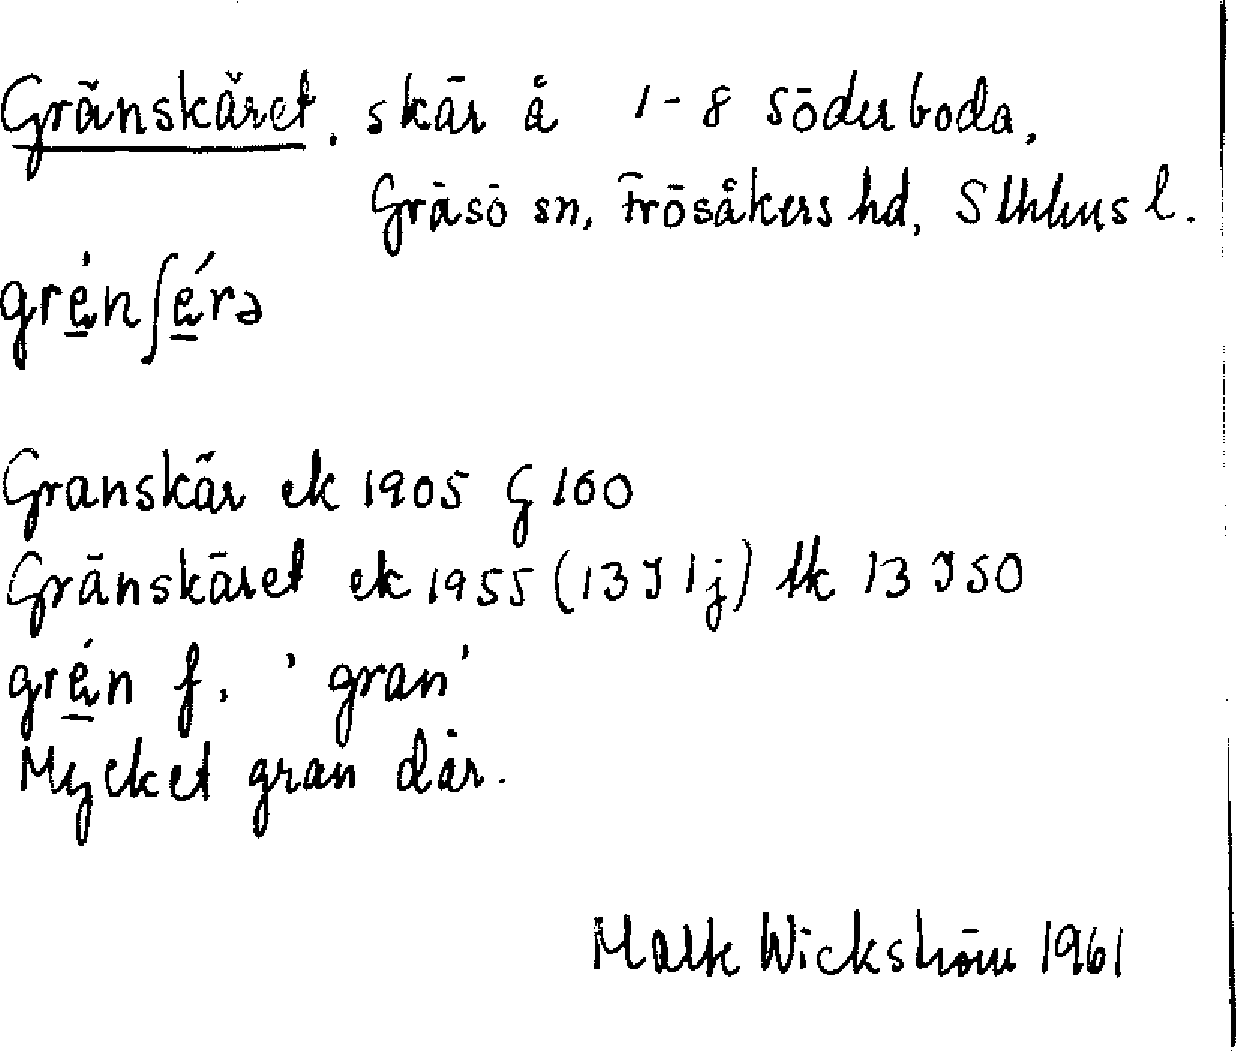 Gränskäret, skär å 1-8 Söderboda,
Gräsö sn, Frösåkers hd, Sthlms l.
grén∫érə
Granskär ek 1905 G 160
Gränskäret ek 1955 (13J1j) tk 13 J SO
grén f. 'gran'
Mycket gran där.
Wickström 1961